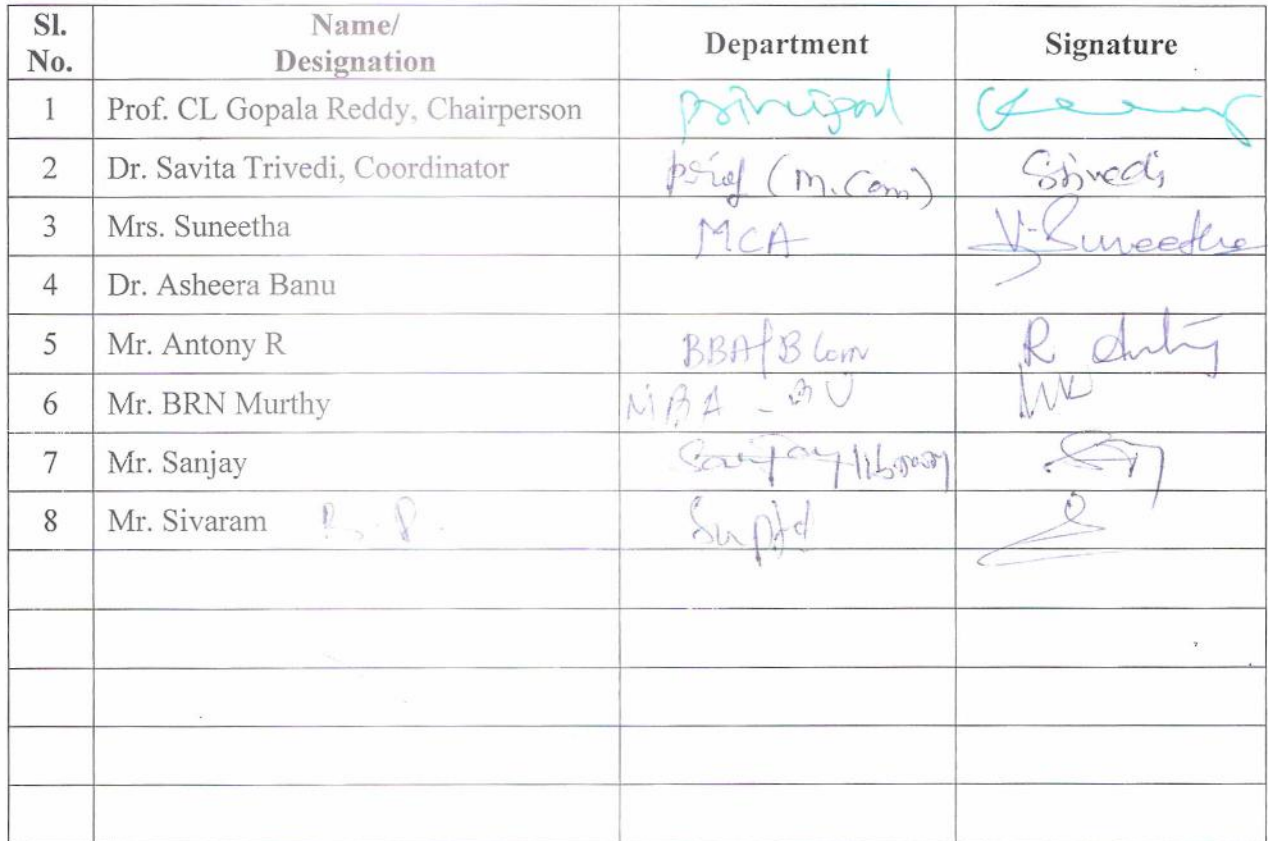 Sl. No. Name/ Designation Department Signature
1 Prof. CL Gopala Reddy, Chairperson principal
2 Dr. Savita Trivedi, Coordinator prof (M.Com) Strivedi
3 Mrs. Suneetha MCA V. Suneetha
4 Dr. Asheera Banu
5 Mr. Antony R BBA/B Com R Antony
6 Mr. BRN Murthy MBA - BU
7 Mr. Sanjay Sanjay library
8 Mr. Sivaram B. P. Suptd